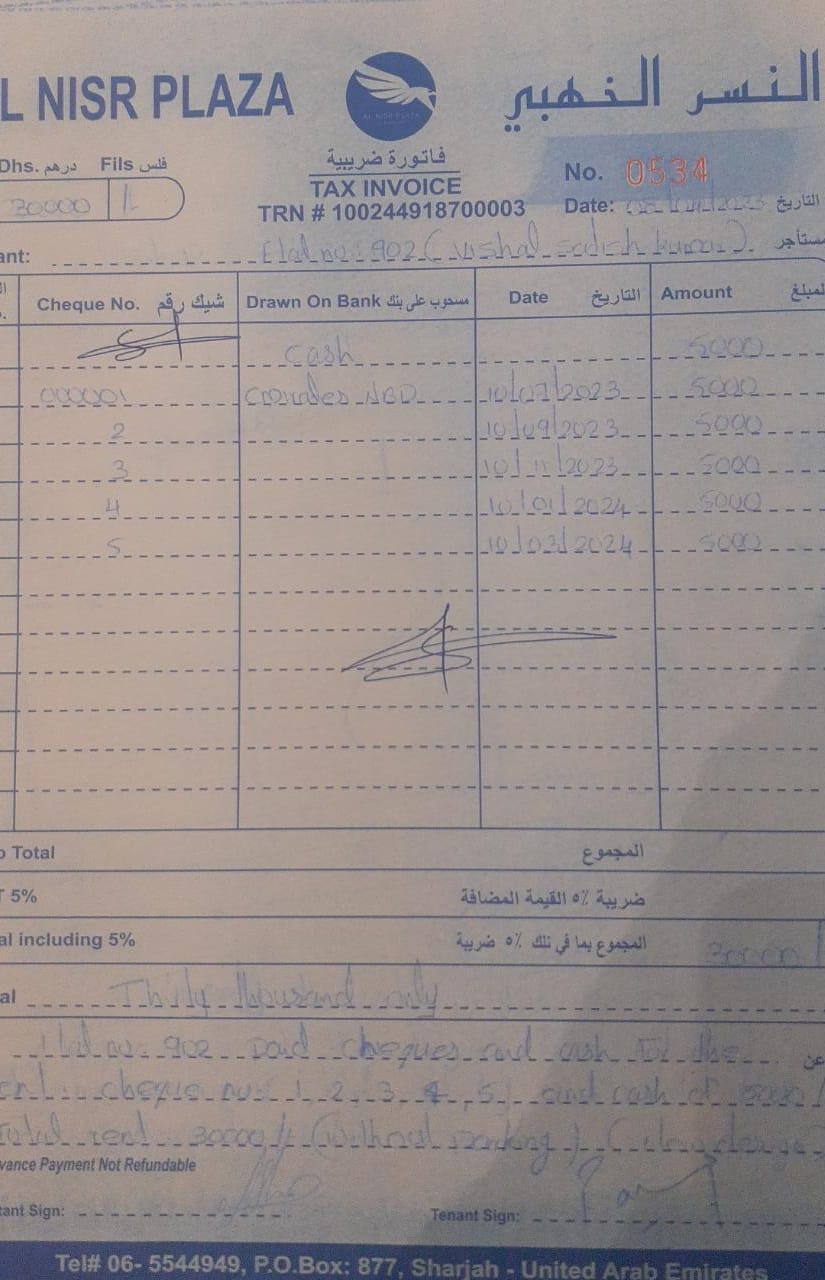 L NISR PLAZA
النسر الذهبي
AL NISR PLAZA
Dhs. درهم Fils فلس
30000
فاتورة ضريبية
TAX INVOICE
TRN # 100244918700003
No. 0534
Date: /2023 التاريخ
ant: Flat no: 902 (Vishal Kumar) مستأجر
Cheque No. شيك رقم Drawn On Bank مسحوب على بنك Date التاريخ Amount لمبلغ
cash 5000
000001 Emirates NBD 10/07/2023 5000
2 10/09/2023 5000
3 10/11/2023 5000
4 10/01/2024 5000
5 10/03/2024 5000
Total المجموع
5% ضريبة ٥٪ القيمة المضافة
al including 5% المجموع بما في تلك ٥٪ ضريبة 30000
al Thirty thousand only
Flat no: 902 paid cheques and cash for the عن
cheque no: 1, 2, 3, 4, 5, and cash of 5000/
Total rent 30000/- (without parking)
vance Payment Not Refundable
ant Sign: Tenant Sign:
Tel# 06- 5544949, P.O.Box: 877, Sharjah - United Arab Emirates